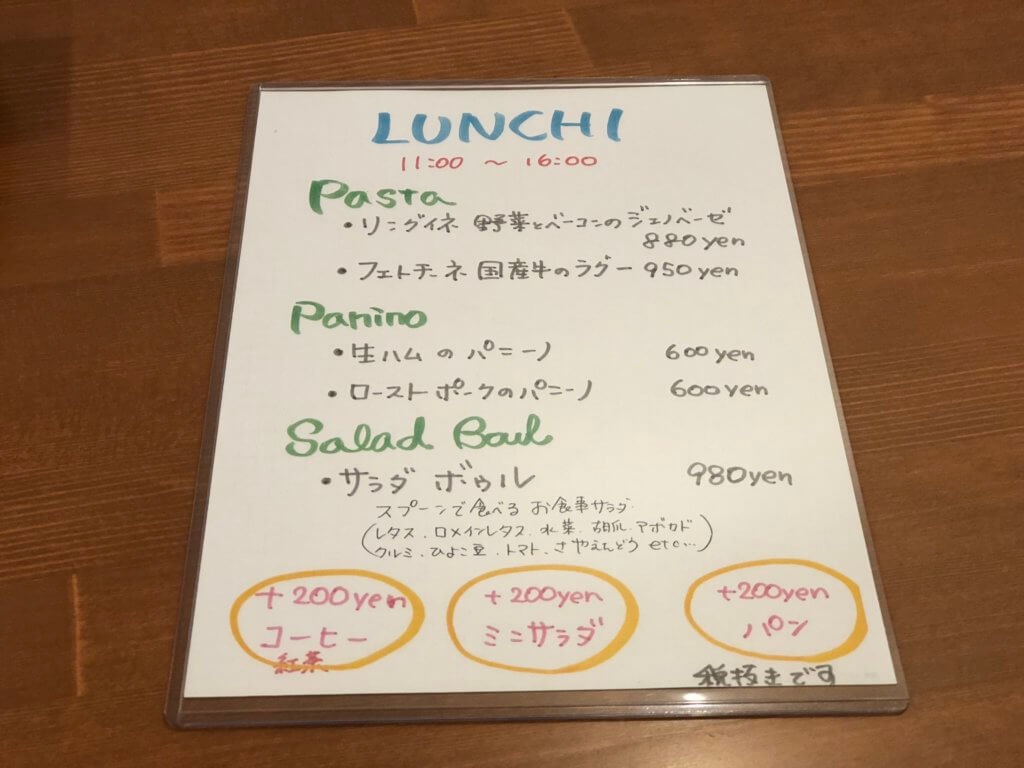 LUNCH
11:00 ~ 16:00
Pasta
・リングイネ 野菜とベーコンのジェノベーゼ
880yen
・フェトチーネ 国産牛のラグー 950yen
Panino
・生ハムのパニーノ 600yen
・ローストポークのパニーノ 600yen
Salad Bowl
・サラダボウル 980yen
スプーンで食べるお食事サラダ
(レタス、ロメインレタス、水菜、胡瓜、アボカド
クルミ、ひよこ豆、トマト、さやえんどう etc…)
+200yen +200yen +200yen
コーヒー ミニサラダ パン
紅茶
税抜きです